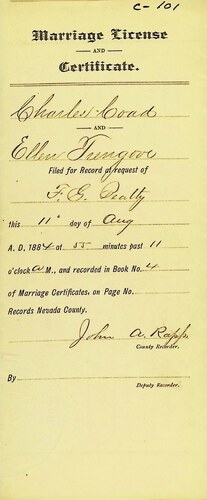 C-101
Marriage License
AND
Certificate.
Charles Coad
AND
Ellen Trengove
Filed for Record at request of
F. G. Bealty
this 11" day of Aug
A. D. 1884 at 55 minutes past 11
o'clock A M., and recorded in Book No. 4
of Marriage Certificates, on Page No.
Records Nevada County.
John A. Rapp
County Recorder.
By
Deputy Recorder.